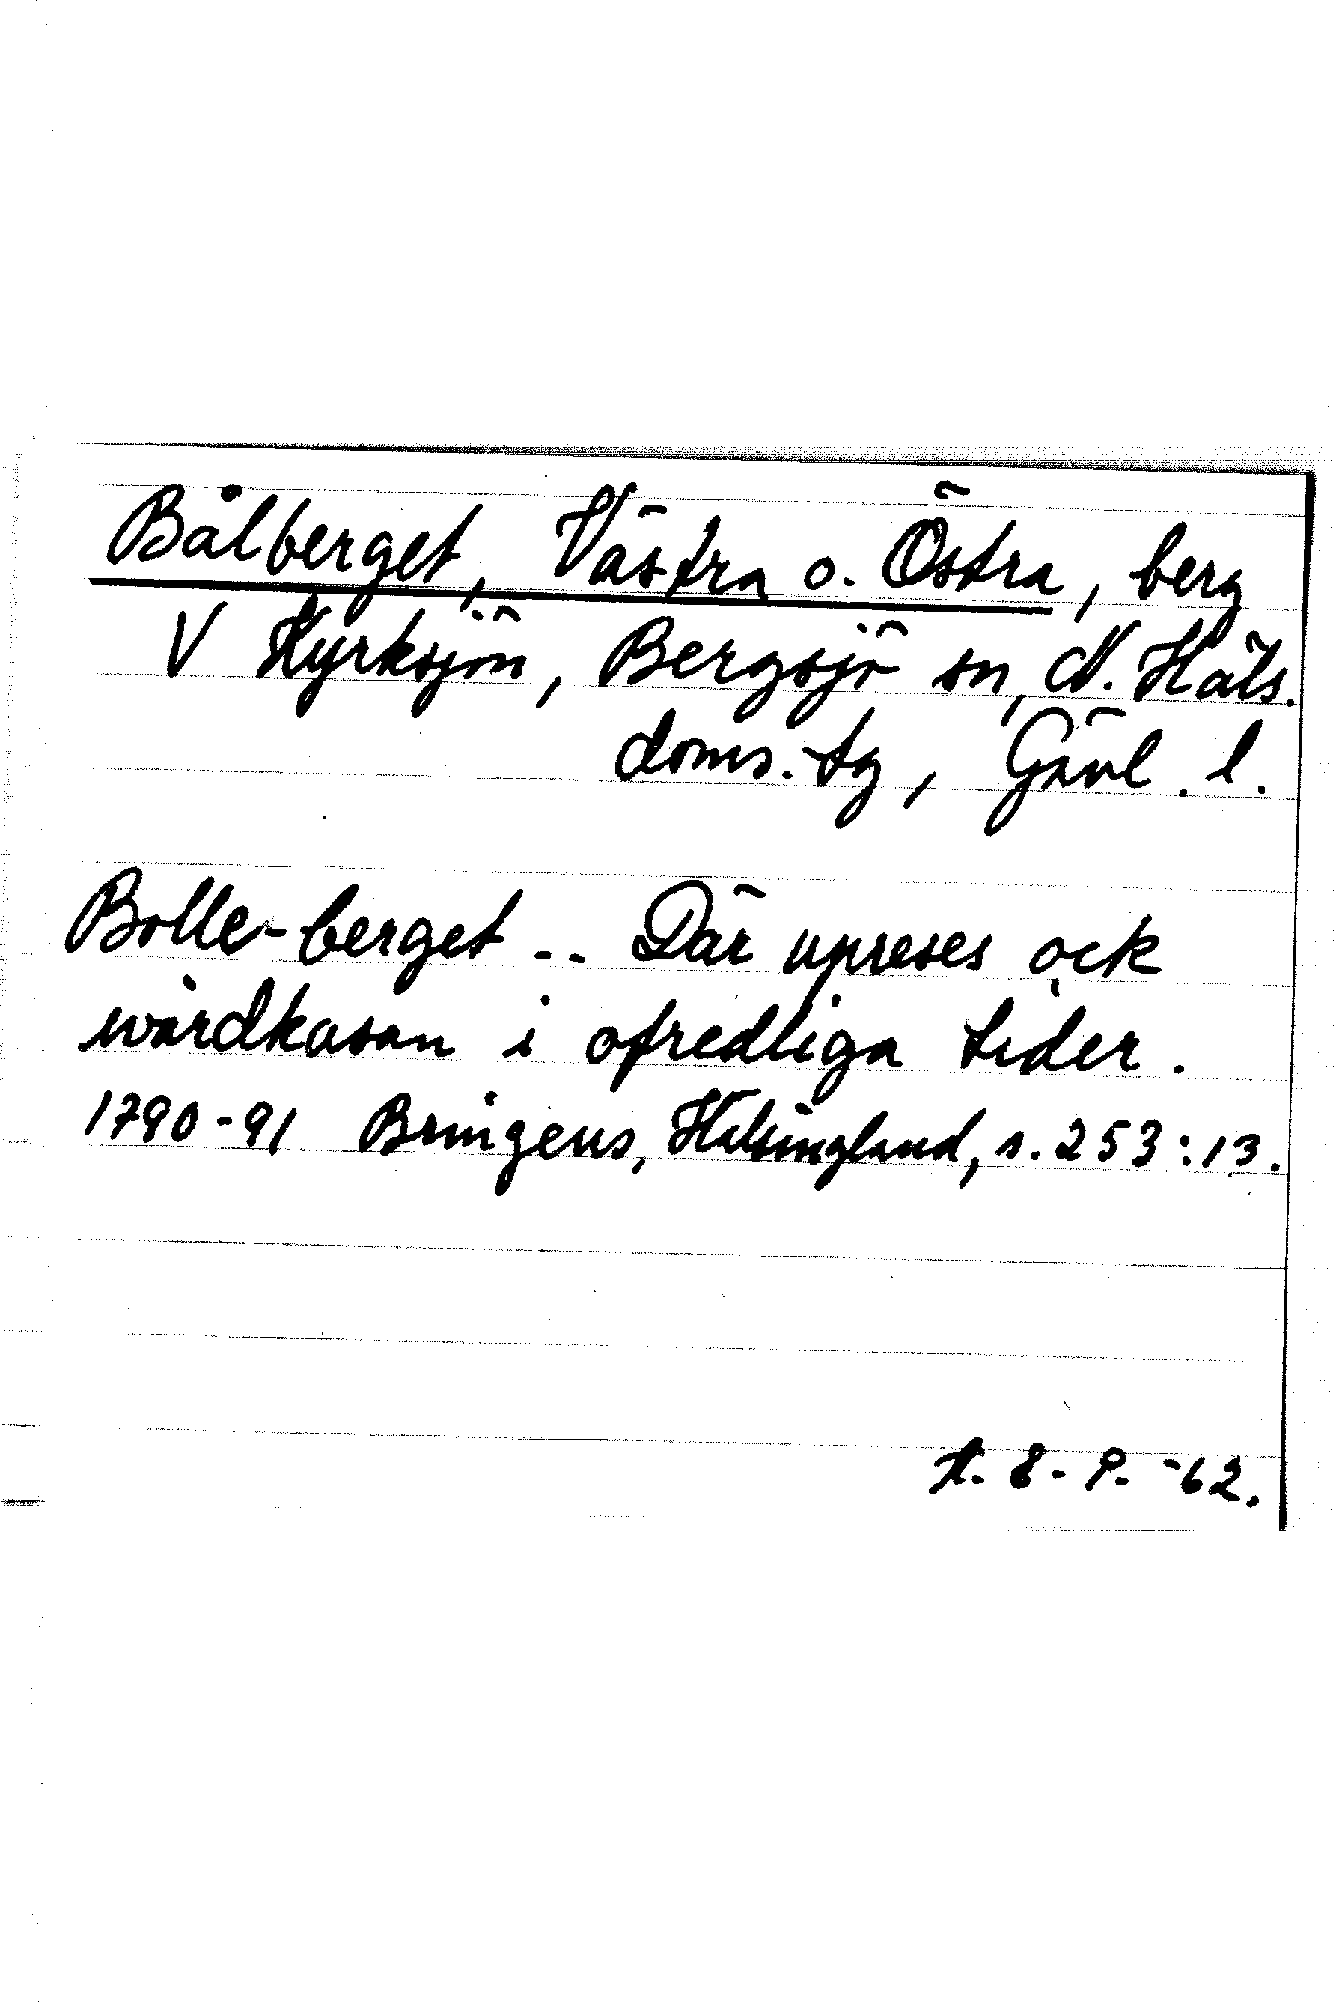 Bålberget, Västra o. Östra, berg
V Kyrksjön, Bergsjö sn, N. Häls.
doms. tg, Gävl. l.
Bolle-berget .. Där upreses ock
wårdkasan i ofredliga tider.
1790-91 Bringéus, Hälsingland, s. 253:13.
t. 8-9. -62.